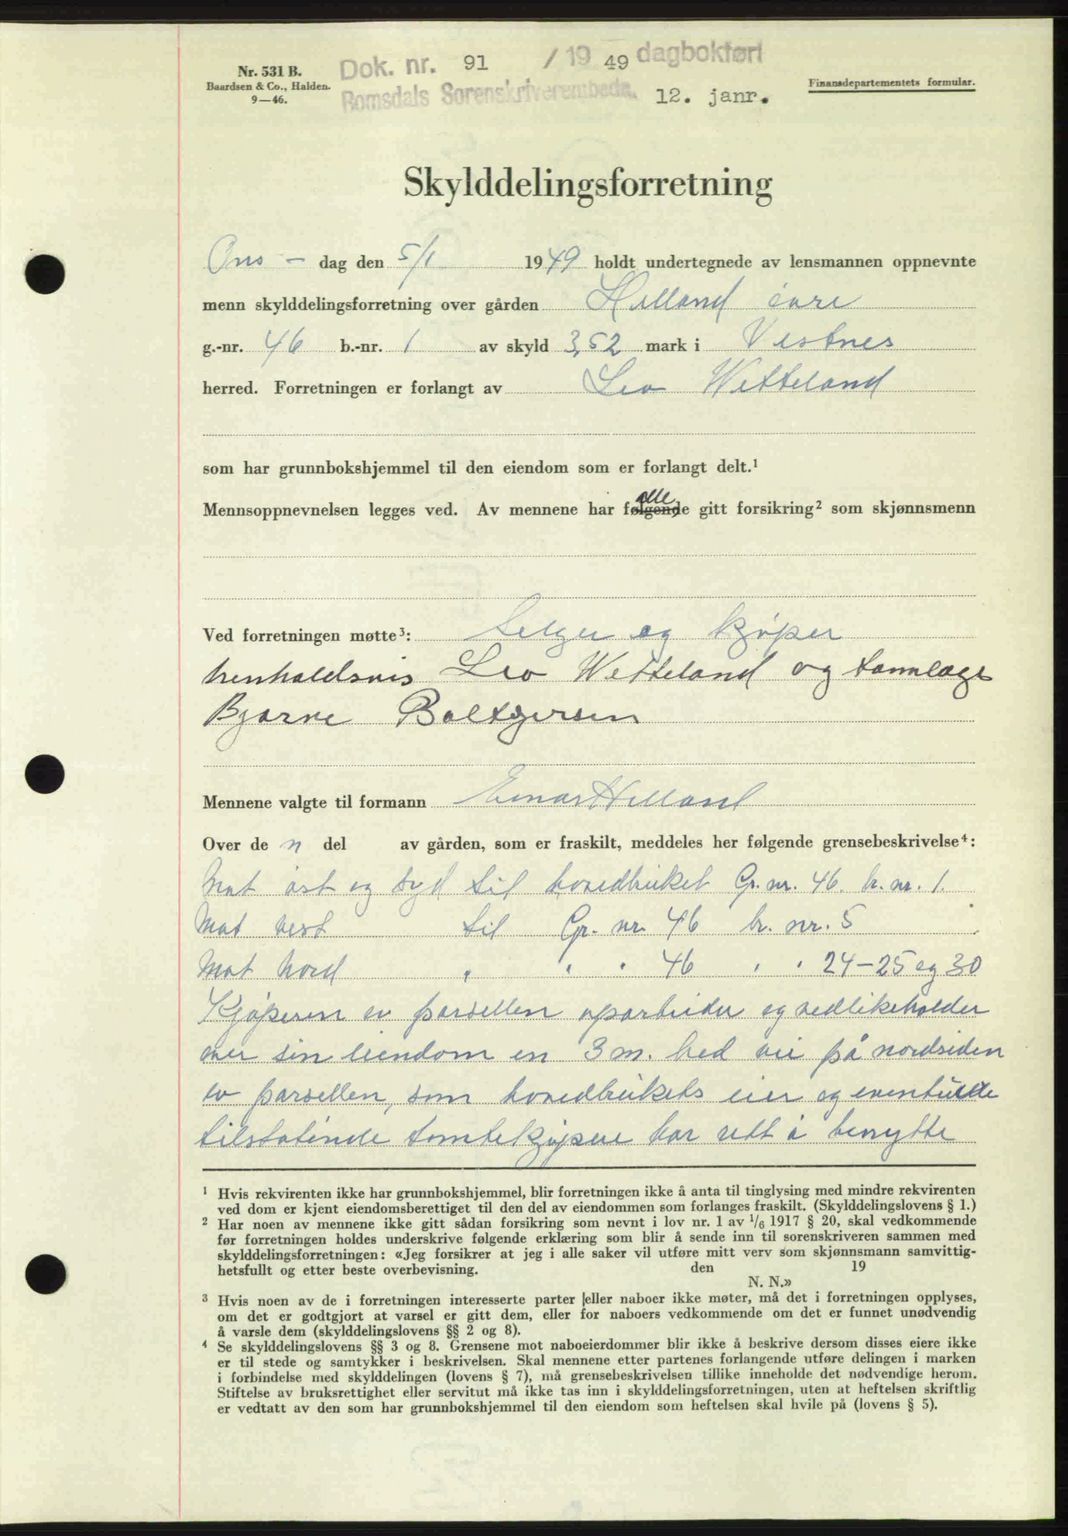 Nr. 531 B.
Baardsen & Co., Halden.
9—46.
Dok. nr. 91 / 19 49 dagbokført
Romsdals Sorenskriverembede. 12. janr.
Finansdepartementets formular.
Skylddelingsforretning
Ons - dag den 5/1 1949 holdt undertegnede av lensmannen oppnevnte
menn skylddelingsforretning over gården Helland øvre
g.-nr. 46 b.-nr. 1 av skyld 3,52 mark i Vestnes
herred. Forretningen er forlangt av Leo Wetteland
som har grunnbokshjemmel til den eiendom som er forlangt delt.¹
alle
Mennsoppnevnelsen legges ved. Av mennene har følgende gitt forsikring² som skjønnsmenn
Ved forretningen møtte³: Selger og kjøper
henholdsvis Leo Wetteland og tannlæge
Bjarne
Mennene valgte til formann Einar Helland
Over de n del av gården, som er fraskilt, meddeles her følgende grensebeskrivelse⁴:
Mot øst og syd til hovedbruket Gr. nr. 46. br. nr. 1.
Mot vest til Gr. nr. 46 br. nr. 5
Mot Nord " " " 46 " " 24-25 og 30
Kjøperen av parsellen oparbeider og vedlikeholder
over sin eiendom en 3 m. bred vei på nordsiden
av parsellen, som hovedbrukets eier og eventuelle
tilstøtende tomtekjøpere har rett å benytte
¹ Hvis rekvirenten ikke har grunnbokshjemmel, blir forretningen ikke å anta til tinglysing med mindre rekvirenten
ved dom er kjent eiendomsberettiget til den del av eiendommen som forlanges fraskilt. (Skylddelingslovens § 1.)
² Har noen av mennene ikke gitt sådan forsikring som nevnt i lov nr. 1 av 1/6 1917 § 20, skal vedkommende
før forretningen holdes underskrive følgende erklæring som blir å sende inn til sorenskriveren sammen med
skylddelingsforretningen: «Jeg forsikrer at jeg i alle saker vil utføre mitt verv som skjønnsmann samvittig-
hetsfullt og etter beste overbevisning. den 19
N. N.»
³ Hvis noen av de i forretningen interesserte parter eller naboer ikke møter, må det i forretningen opplyses,
om det er godtgjort at varsel er gitt dem, eller for naboers vedkommende om det er funnet unødvendig
å varsle dem (skylddelingslovens §§ 2 og 8).
⁴ Se skylddelingslovens §§ 3 og 8. Grensene mot naboeierdommer blir ikke å beskrive dersom disses eiere ikke
er til stede og samtykker i beskrivelsen. Skal mennene etter partenes forlangende utføre delingen i marken
i forbindelse med skylddelingen (lovens § 7), må grensebeskrivelsen tillike inneholde det nødvendige herom.
Stiftelse av bruksrettighet eller servitut må ikke tas inn i skylddelingsforretningen, uten at heftelsen skriftlig
er vedtatt av den som har grunnbokshjemmel til den eiendom som heftelsen skal hvile på (lovens § 5).